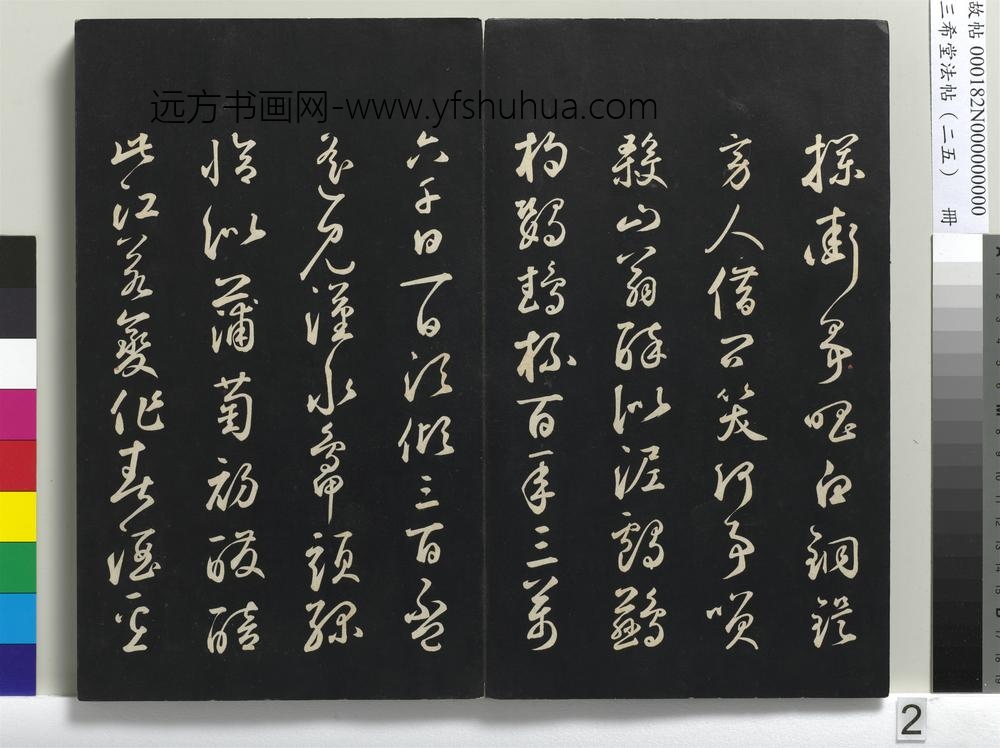 远方书画网-www.yfshuhua.com
攔街爭唱白銅鍉
旁人借問笑何事笑
殺山翁醉似泥鸕鷀
杓鸚鵡杯百年三萬
六千日一日須傾三百盃
遙見漢水鴨頭綠
恰似蒲萄初醱醅
此江若變作春酒壘
故帖 000182N000000000
三希堂法帖（二五） 冊
2